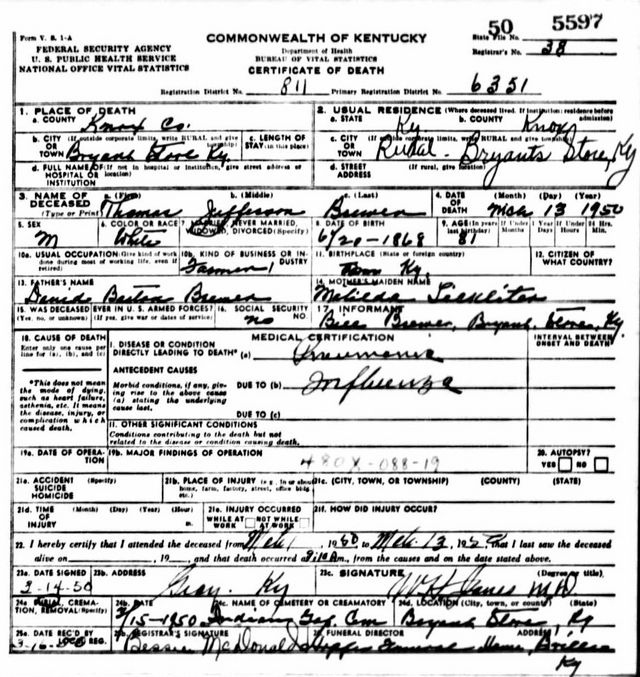 50 5597
Form V. S. 1-A
COMMONWEALTH OF KENTUCKY
State File No.
FEDERAL SECURITY AGENCY
Department of Health
Registrar's No. 38
U. S. PUBLIC HEALTH SERVICE
BUREAU OF VITAL STATISTICS
NATIONAL OFFICE VITAL STATISTICS
CERTIFICATE OF DEATH
Registration District No. 811 Primary Registration District No. 6351
1. PLACE OF DEATH
a. COUNTY Knox Co.
2. USUAL RESIDENCE (Where deceased lived. If institution: residence before admission)
a. STATE Ky b. COUNTY Knox
b. CITY (If outside corporate limits, write RURAL and give township) OR TOWN Bryant Store Ky.
c. LENGTH OF STAY (in this place)
c. CITY (If outside corporate limits, write RURAL and give township) OR TOWN Rural - Bryants Store, Ky
d. FULL NAME OF (If not in hospital or institution, give street address or location) HOSPITAL OR INSTITUTION
d. STREET ADDRESS (If rural, give location)
3. NAME OF DECEASED (Type or Print)
a. (First) Thomas b. (Middle) Jefferson c. (Last) Brewer
4. DATE OF DEATH (Month) (Day) (Year) Mch 13 1950
5. SEX M
6. COLOR OR RACE? White
7. MARRIED, NEVER MARRIED, WIDOWED, DIVORCED (Specify)
8. DATE OF BIRTH 6/20-1868
9. AGE (in years last birthday) 81
If Under 1 Year If Under 24 Hrs.
10a. USUAL OCCUPATION (Give kind of work done during most of working life, even if retired)
10b. KIND OF BUSINESS OR INDUSTRY
Farmer
11. BIRTHPLACE (State or foreign country)
Ky.
12. CITIZEN OF WHAT COUNTRY?
13. FATHER'S NAME
Brewer
14. MOTHER'S MAIDEN NAME
15. WAS DECEASED EVER IN U. S. ARMED FORCES? (Yes, no, or unknown) (If yes, give war or dates of service)
16. SOCIAL SECURITY NO. no
17. INFORMANT
Brewer, Bryant Store, Ky.
18. CAUSE OF DEATH
Enter only one cause per line for (a), (b), and (c)
MEDICAL CERTIFICATION
INTERVAL BETWEEN ONSET AND DEATH
I. DISEASE OR CONDITION DIRECTLY LEADING TO DEATH* (a) Pneumonia
*This does not mean the mode of dying, such as heart failure, asthenia, etc. It means the disease, injury, or complication which caused death.
ANTECEDENT CAUSES
Morbid conditions, if any, giving rise to the above cause (a) stating the underlying cause last.
DUE TO (b) Influenza
DUE TO (c)
II. OTHER SIGNIFICANT CONDITIONS
Conditions contributing to the death but not related to the disease or condition causing death.
19a. DATE OF OPERATION
19b. MAJOR FINDINGS OF OPERATION
480X-088-19
20. AUTOPSY?
YES NO
21a. ACCIDENT SUICIDE HOMICIDE (Specify)
21b. PLACE OF INJURY (e.g., in or about home, farm, factory, street, office bldg., etc.)
21c. (CITY, TOWN, OR TOWNSHIP) (COUNTY) (STATE)
21d. TIME OF INJURY (Month) (Day) (Year) (Hour) m
21e. INJURY OCCURRED
WHILE AT WORK NOT WHILE AT WORK
21f. HOW DID INJURY OCCUR?
22. I hereby certify that I attended the deceased from Mch 1 1950 to Mch 13, 1950 that I last saw the deceased
alive on , 19 and that death occurred m., from the causes and on the date stated above.
23a. DATE SIGNED 3-14-50
23b. ADDRESS Gray. Ky
23c. SIGNATURE (Degree or title) MD
24a. BURIAL, CREMATION, REMOVAL (Specify)
24b. DATE 3/15-1950
24c. NAME OF CEMETERY OR CREMATORY Indian Gap Cem
24d. LOCATION (City, town, or county) (State) Bryant Store, Ky
25a. DATE REC'D BY LOCAL REG. 3-16-50
25b. REGISTRAR'S SIGNATURE Bessie McDonald
26. FUNERAL DIRECTOR ADDRESS
Funeral Home, Ky